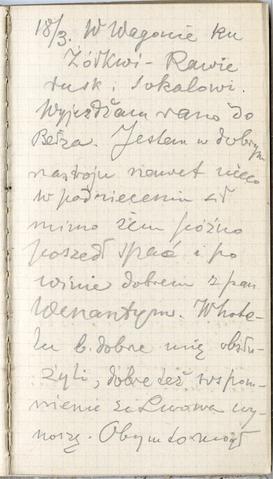 18/3. W Wagonie ku
Żółkwi - Rawie
rusk. i Sokalowi.
Wyjeżdżam rano do
Bełza. Jestem w dobrym
nastroju nawet nieco
w podnieceniu
mimo żem późno
poszedł spać i po
winie dobrem z pan
Wenantym. W hote-
lu b. dobre mię obsłu-
żyli, dobre też wspom-
nienie ze Lwowa wy-
noszę. Obym to mógł